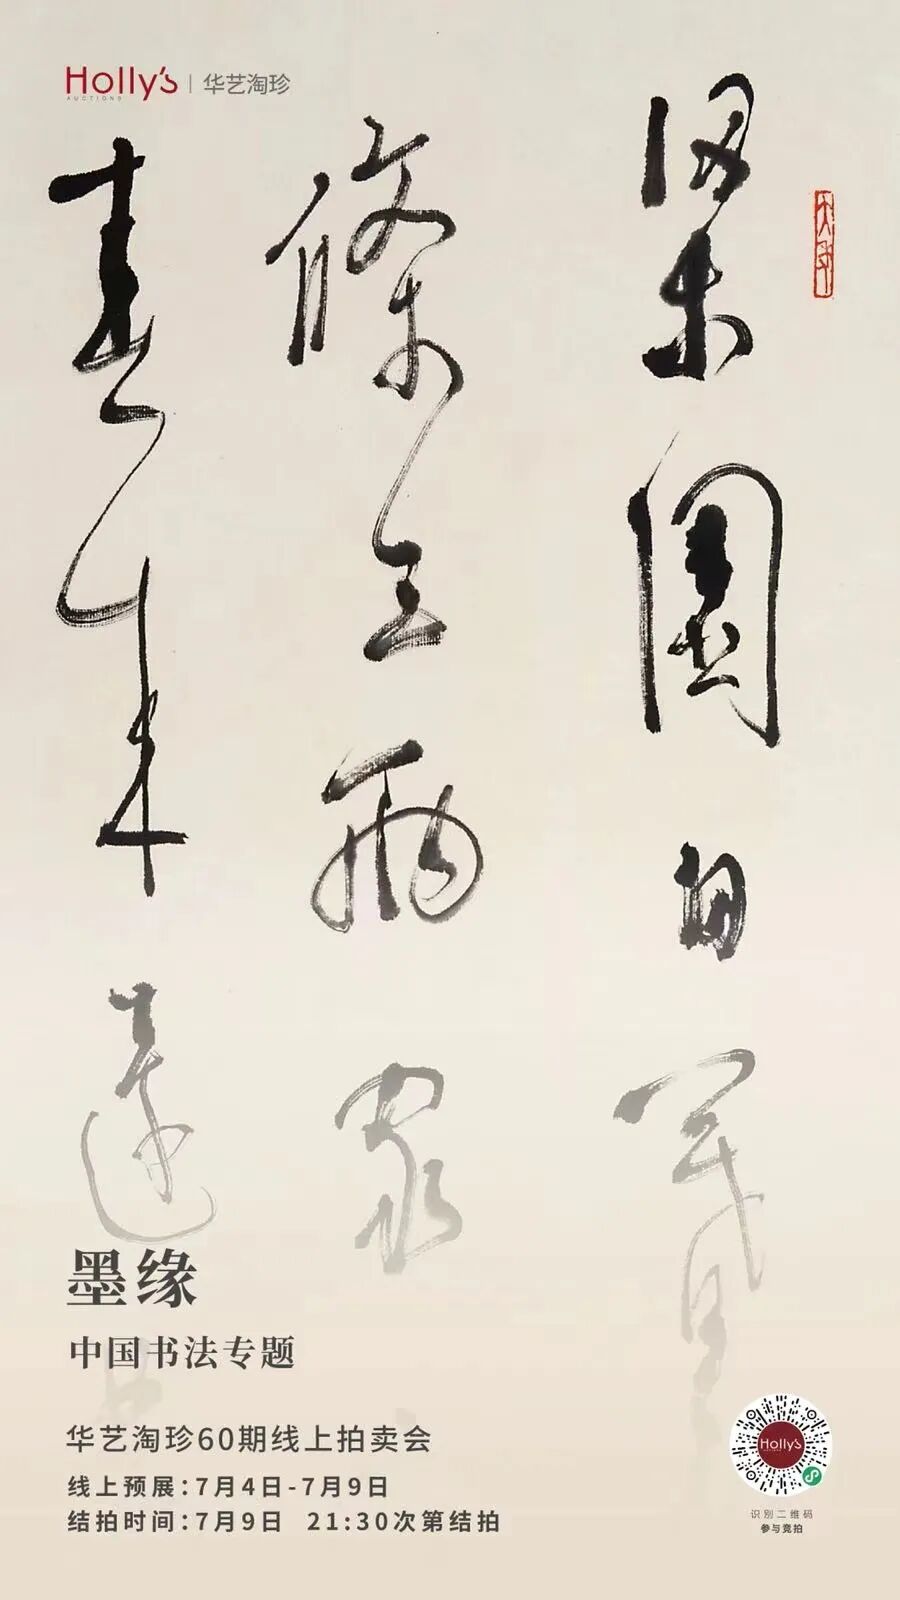 Holly's | 华艺淘珍
AUCTIONS
梁園日暮
條三兩家
春來還
墨缘
中国书法专题
华艺淘珍60期线上拍卖会
线上预展:7月4日-7月9日
结拍时间:7月9日 21:30次第结拍
Holly's
识别二维码
参与竞拍